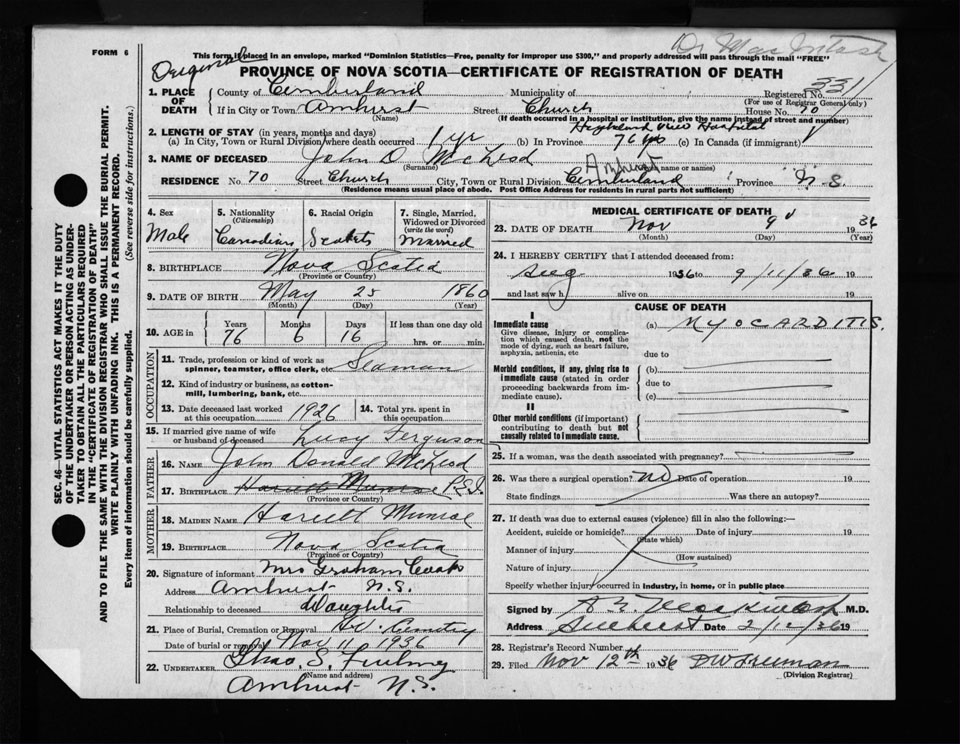 FORM 6
Dr MacIntosh
This form if placed in an envelope, marked "Dominion Statistics—Free, penalty for improper use $300," and properly addressed will pass through the mail "FREE"
Original
PROVINCE OF NOVA SCOTIA—CERTIFICATE OF REGISTRATION OF DEATH
1. PLACE OF DEATH County of Cumberland Municipality of Registered No. 3311
(For use of Registrar General only)
If in City or Town Amherst Street Church House No. 70
(Name) (If death occurred in a hospital or institution, give the name instead of street and number)
Highland View Hospital
2. LENGTH OF STAY (in years, months and days)
(a) In City, Town or Rural Division where death occurred 1 yr (b) In Province 76 yrs (c) In Canada (if immigrant)
3. NAME OF DECEASED John D McLeod
(Surname) name or names)
Amherst
RESIDENCE No. 70 Street Church City, Town or Rural Division Cumberland Province N.S.
(Residence means usual place of abode. Post Office Address for residents in rural parts not sufficient)
4. Sex Male
5. Nationality (Citizenship) Canadian
6. Racial Origin
7. Single, Married, Widowed or Divorced (write the word) Married
8. BIRTHPLACE Nova Scotia
(Province or Country)
9. DATE OF BIRTH May 25 1860
(Month) (Day) (Year)
10. AGE in Years 76 Months 6 Days 16 If less than one day old hrs. or min.
OCCUPATION
11. Trade, profession or kind of work as spinner, teamster, office clerk, etc Seaman
12. Kind of industry or business, as cotton-mill, lumbering, bank, etc.
13. Date deceased last worked at this occupation 1926
14. Total yrs. spent in this occupation.
15. If married give name of wife or husband of deceased Lucy Ferguson
FATHER
16. NAME John Donald McLeod
17. BIRTHPLACE Hariett Munroe P.E.I.
(Province or Country)
MOTHER
18. MAIDEN NAME Hariett Munroe
19. BIRTHPLACE Nova Scotia
(Province or Country)
20. Signature of informant Mrs Graham
Address Amherst N.S.
Relationship to deceased Daughter
21. Place of Burial, Cremation or Removal Cemetry
Date of burial or removal Nov 11 1936
22. UNDERTAKER Chas. S.
(Name and address)
Amherst N.S.
MEDICAL CERTIFICATE OF DEATH
23. DATE OF DEATH Nov 9 1936
(Month) (Day) (Year)
24. I HEREBY CERTIFY that I attended deceased from:
Aug 1936 to 9/11/36 19
and last saw h alive on 19
CAUSE OF DEATH
I
Immediate cause
Give disease, injury or complication which caused death, not the mode of dying, such as heart failure, asphyxia, asthenia, etc
(a) MYOCARDITIS.
due to
Morbid conditions, if any, giving rise to immediate cause (stated in order proceeding backwards from immediate cause).
(b)
due to
(c)
II
Other morbid conditions (if important) contributing to death but not causally related to immediate cause.
25. If a woman, was the death associated with pregnancy?
26. Was there a surgical operation? NO Date of operation 19
State findings Was there an autopsy?
27. If death was due to external causes (violence) fill in also the following:—
Accident, suicide or homicide? Date of injury 19
(State which)
Manner of injury
(How sustained)
Nature of injury
Specify whether injury occurred in industry, in home, or in public place
Signed by M.D.
Address Amherst Date 2/12/36 19
28. Registrar's Record Number
29. Filed Nov 12th 1936 DW Freeman
(Division Registrar)
SEC. 46—VITAL STATISTICS ACT MAKES IT THE DUTY
OF THE UNDERTAKER OR PERSON ACTING AS UNDER-
TAKER TO OBTAIN ALL THE PARTICULARS REQUIRED
IN THE "CERTIFICATE OF REGISTRATION OF DEATH"
AND TO FILE THE SAME WITH THE DIVISION REGISTRAR WHO SHALL ISSUE THE BURIAL PERMIT.
WRITE PLAINLY WITH UNFADING INK. THIS IS A PERMANENT RECORD.
Every item of information should be carefully supplied. (See reverse side for instructions.)